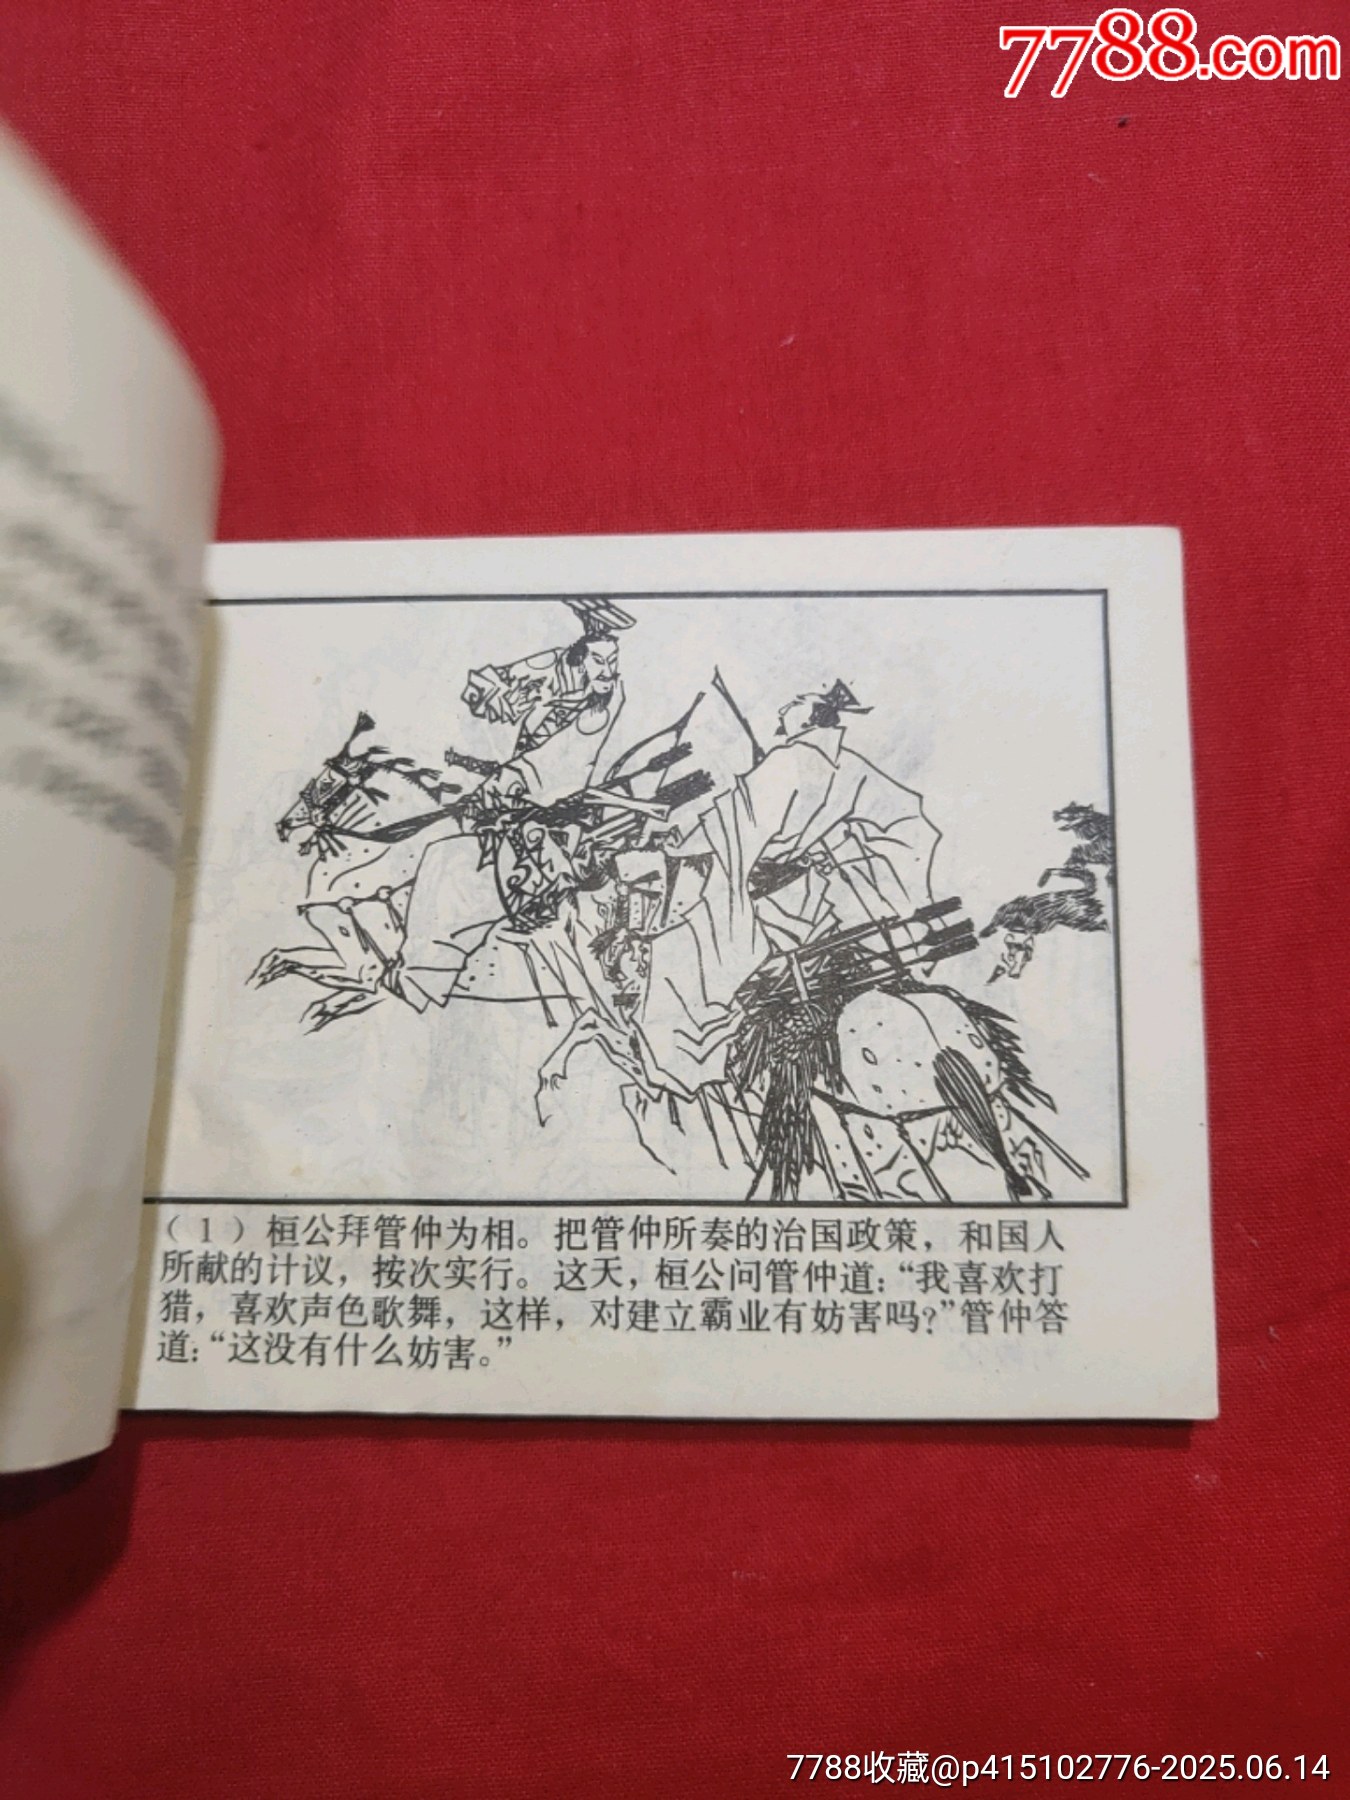 7788.com
（1）桓公拜管仲为相。把管仲所奏的治国政策，和国人
所献的计议，按次实行。这天，桓公问管仲道：“我喜欢打
猎，喜欢声色歌舞，这样，对建立霸业有妨害吗？”管仲答
道：“这没有什么妨害。”
7788收藏@p415102776-2025.06.14